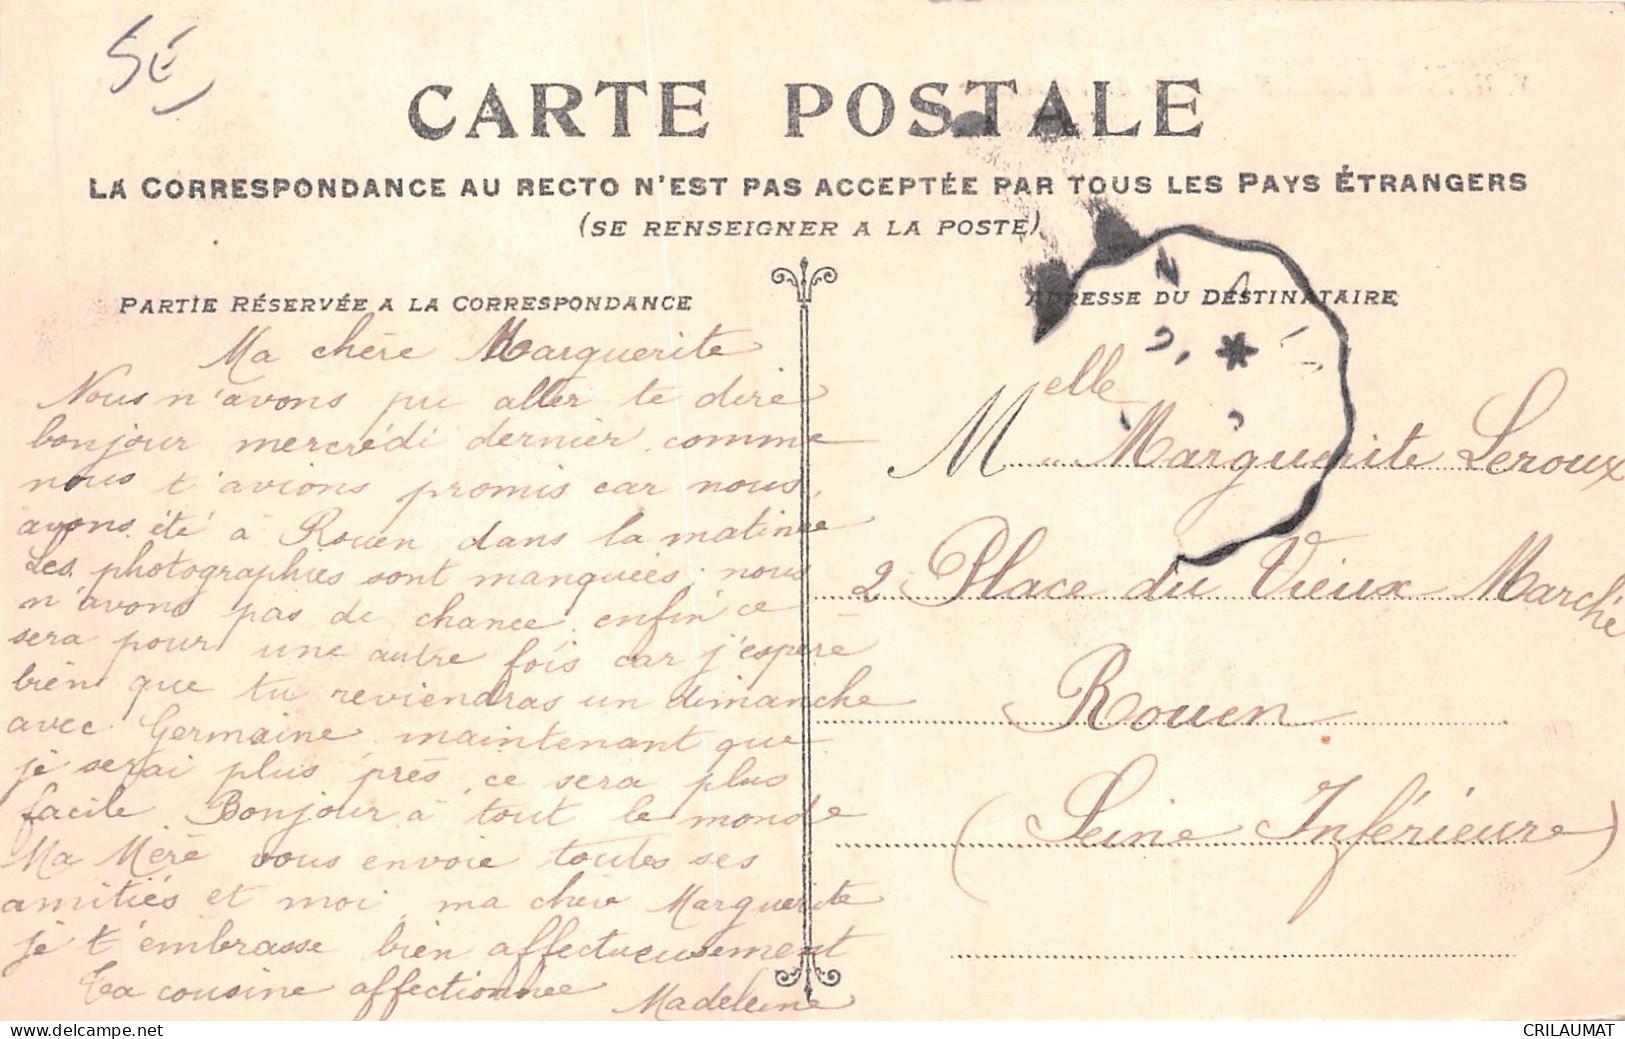 5E
CARTE POSTALE
LA CORRESPONDANCE AU RECTO N'EST PAS ACCEPTÉE PAR TOUS LES PAYS ÉTRANGERS
(SE RENSEIGNER A LA POSTE)
PARTIE RÉSERVÉE A LA CORRESPONDANCE
Ma chère Marguerite
Nous n'avons pu aller te dire
bonjour mercrédi dernier comme
nous t'avions promis car nous
avons été à Rouen dans la matinée
Les photographies sont manquées. nous
n'avons pas de chance enfin ce
sera pour une autre fois car j'espère
bien que tu reviendras un dimanche
avec Germaine maintenant que
je serai plus près, ce sera plus
facile Bonjour à tout le monde
Ma Mère vous envoie toutes ses
amitiés et moi, ma chère Marguerite
je t'embrasse bien affectueusement
Ta cousine affectionnée Madeleine
ADRESSE DU DESTINATAIRE
Melle Marguerite Leroux
2 Place du Vieux Marché
Rouen
(Seine Inférieure)
delcampe.net
CRILAUMAT